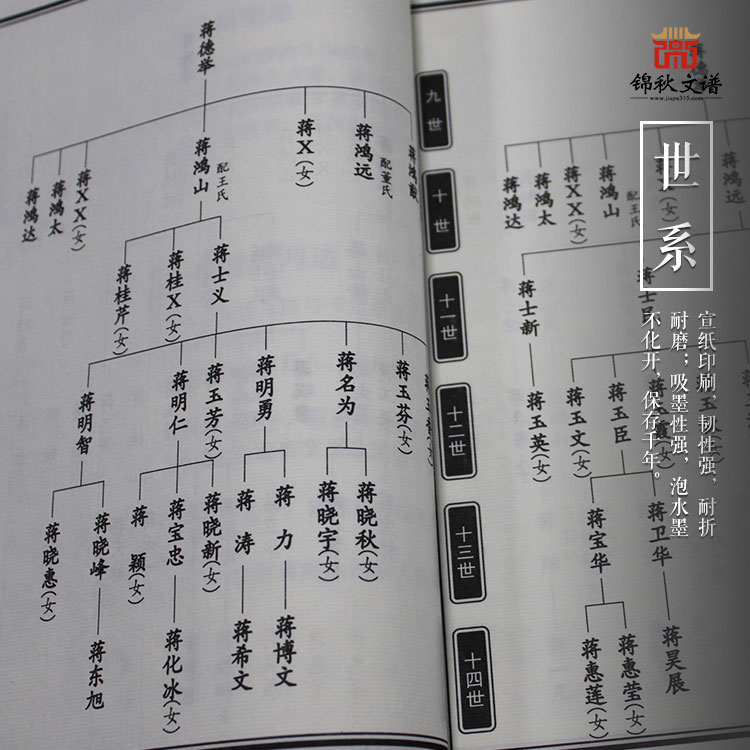 锦秋文谱
www.jiapu315.com
世系
宣纸印刷，韧性强，耐折
耐磨；吸墨性强，泡水墨
不化开，保存千年。
九世
十世
十一世
十二世
十三世
十四世
蒋德举
蒋鸿达
蒋鸿太
蒋XX(女)
蒋鸿山
配王氏
蒋X(女)
蒋鸿远
配董氏
蒋鸿
蒋桂芹(女)
蒋桂X(女)
蒋士义
蒋明智
蒋明仁
蒋玉芳(女)
蒋明勇
蒋名为
蒋玉芬(女)
蒋晓惠(女)
蒋晓峰
蒋颖(女)
蒋宝忠
蒋晓新(女)
蒋涛
蒋力
蒋晓宇(女)
蒋晓秋(女)
蒋东旭
蒋化冰(女)
蒋希文
蒋博文
蒋鸿达
蒋鸿太
蒋XX(女)
蒋鸿山
配王氏
蒋鸿远
蒋士新
蒋士
蒋玉英(女)
蒋玉文(女)
蒋玉臣
蒋玉
蒋宝华
蒋卫华
蒋惠莲(女)
蒋惠莹(女)
蒋昊展